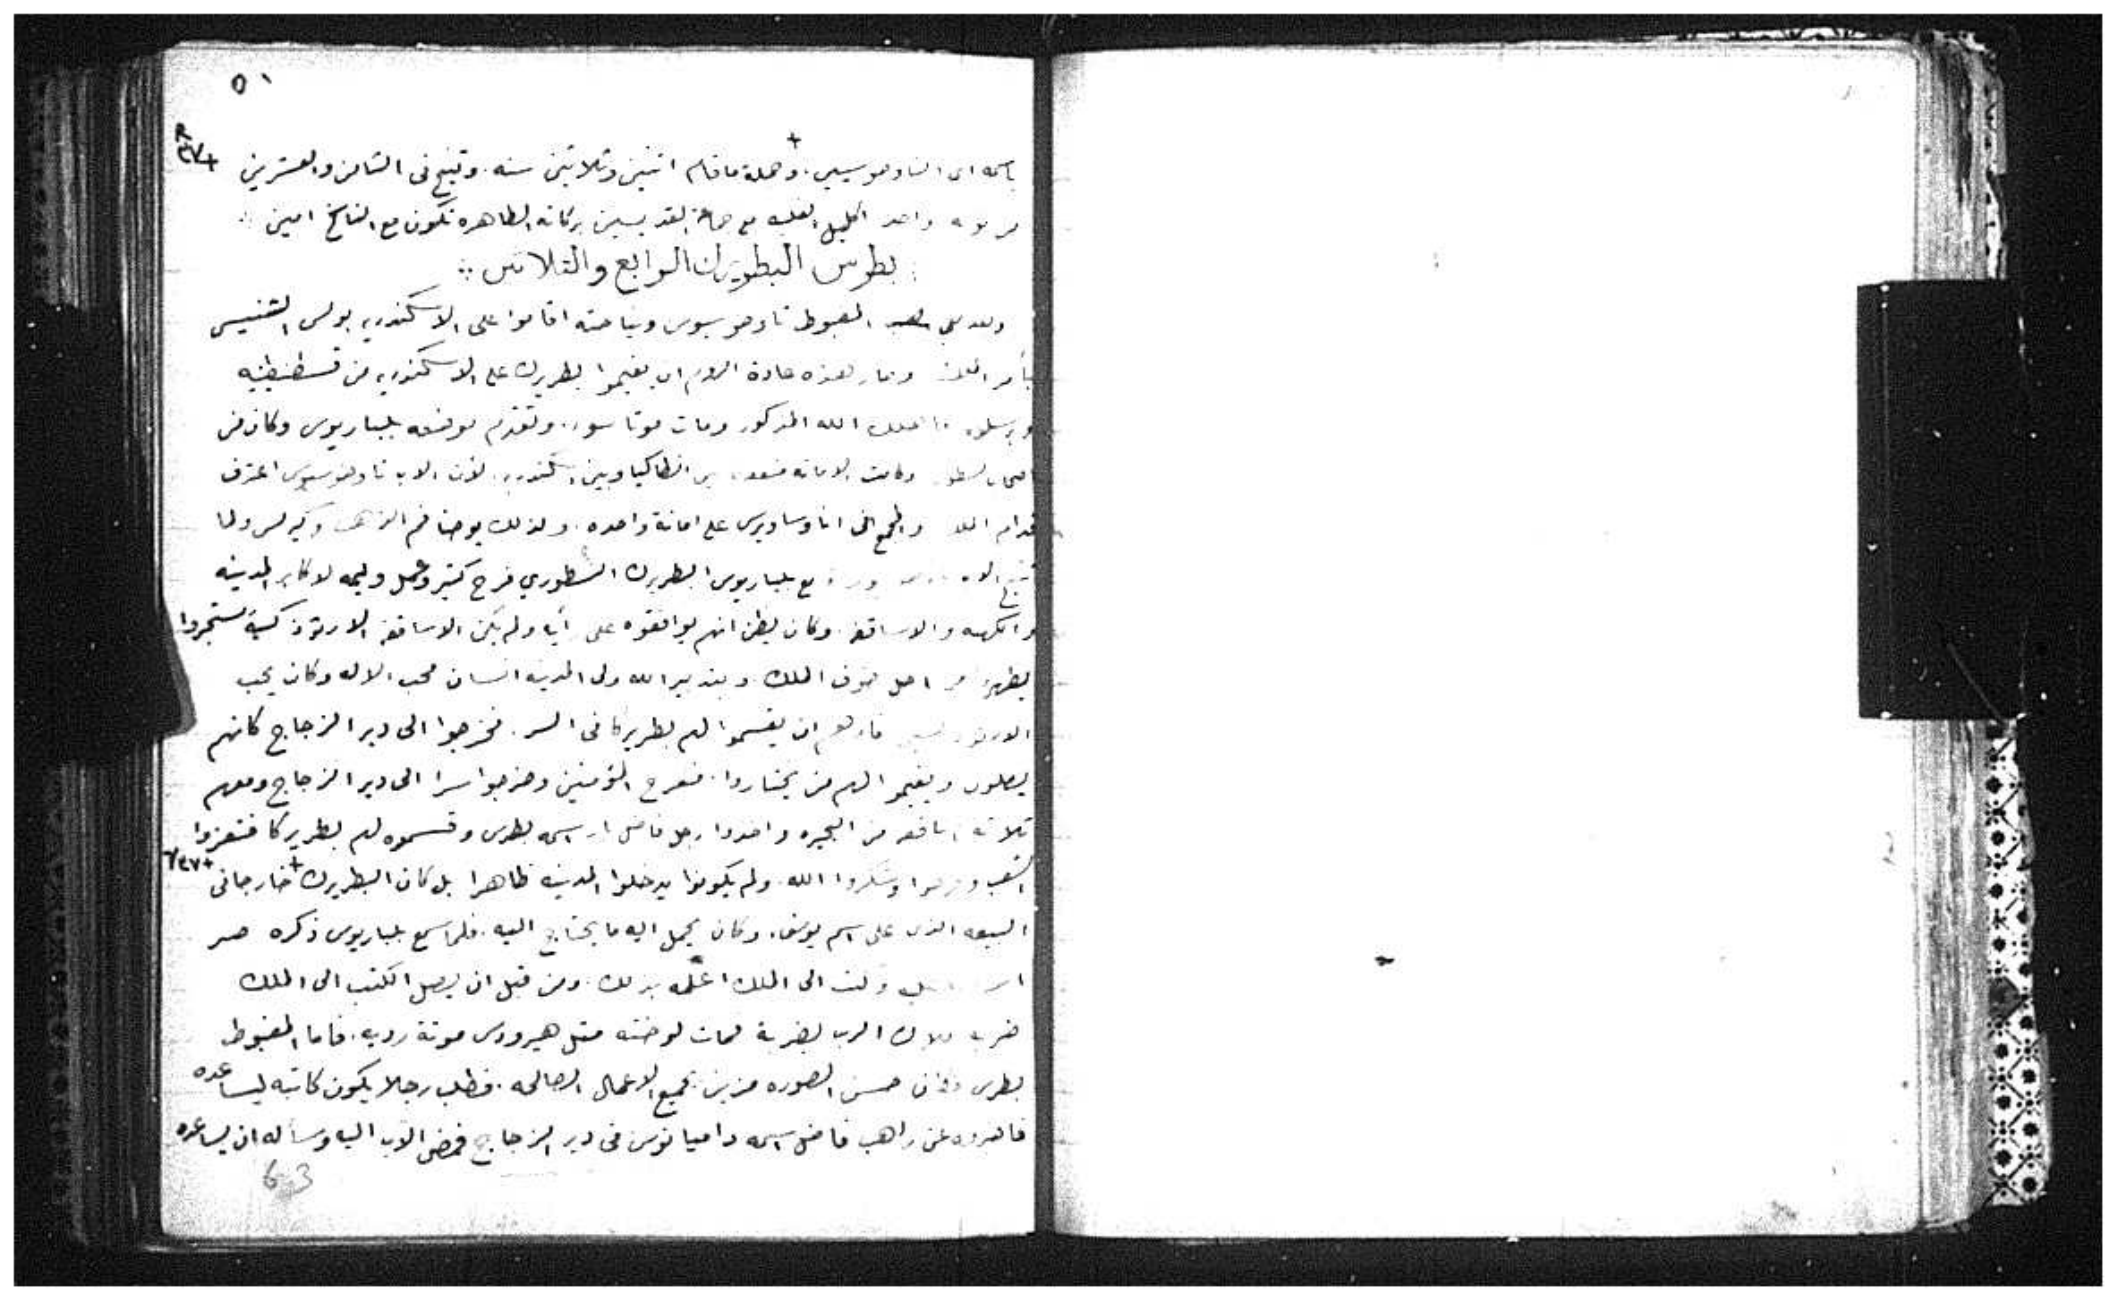 ٥١
باسمه اى التاوضوسيين. وجملة ما قام اتنين وتلاتين سنه. وتنيح فى التامن والعشرين
من بونه واخد اكليل الغلبه مع جماعة القديسين بركاته الطاهره تكون مع الناسخ امين
بطرس البطريرك الرابع والتلاتين
المغبوط تاوضوسيوس ونياحته اقاموا على الاسكندريه بولس التنيسى
بأمر الملك وصار هذه عادة الروم ان يقيموا بطريرك على الاسكندريه من قسطنطينيه
ويرسلوه اهلك الله المذكور ومات موتا سوء. وتقدم موضعه بلباريوس وكان من
وكانت الامانه بين انطاكيا وبين اسكندريه. لأن الاب تاوضوسيوس اعترف
قدام الملك والمجمع انى انا وساويرس على امانة واحده. ولذلك يوحنا فم الذهب وكيرلس ولما
تنيح الاب بلباريوس البطريرك النسطوري فرح كتير وعمل وليمه لاكابر المدينه
والكهنه والاساقفه. وكان يظن انهم يوافقوه على رأيه ولم يكن الاساقفه الارتودكسية يستجروا
يظهروا من اجل خوف الملك. وبتدبير الله ولى المدينه انسان محب الاله وكان يحب
الارتودكسيين فامرهم ان يقسموا لهم بطريركا فى السر. فخرجوا الى دير الزجاج كانهم
يصلون ويقيموا لهم من يختاروا. ففرح المؤمنين وخرجوا سرا الى دير الزجاج ومعهم
تلاته اساقفه من البحيره واخدوا رجل فاضل اسمه بطرس وقسموه لهم بطريركا فتعزوا
الشعب وفرحوا وشكروا الله. ولم يكونوا يدخلوا المدينه ظاهرا بل كان البطريرك خارجا فى
البيعه الذى على اسم يوسف. وكان يحمل اليه ما يحتاج اليه. فلما سمع بلباريوس ذكره
وكتب الى الملك اعلمه بذلك. ومن قبل ان يصل الكتب الى الملك
ضربه ملاك الرب بضربة فمات لوقته متل هيرودس موتة رديه. فاما المغبوط
بطرس فكان حسن الصوره مزين بجميع الاعمال الصالحه. فطلب رجلا يكون كاتبه ليساعده
فاخبروه عن راهب فاضل اسمه داميانوس فى دير الزجاج فمضى الاب اليه وسأله ان يساعده
63